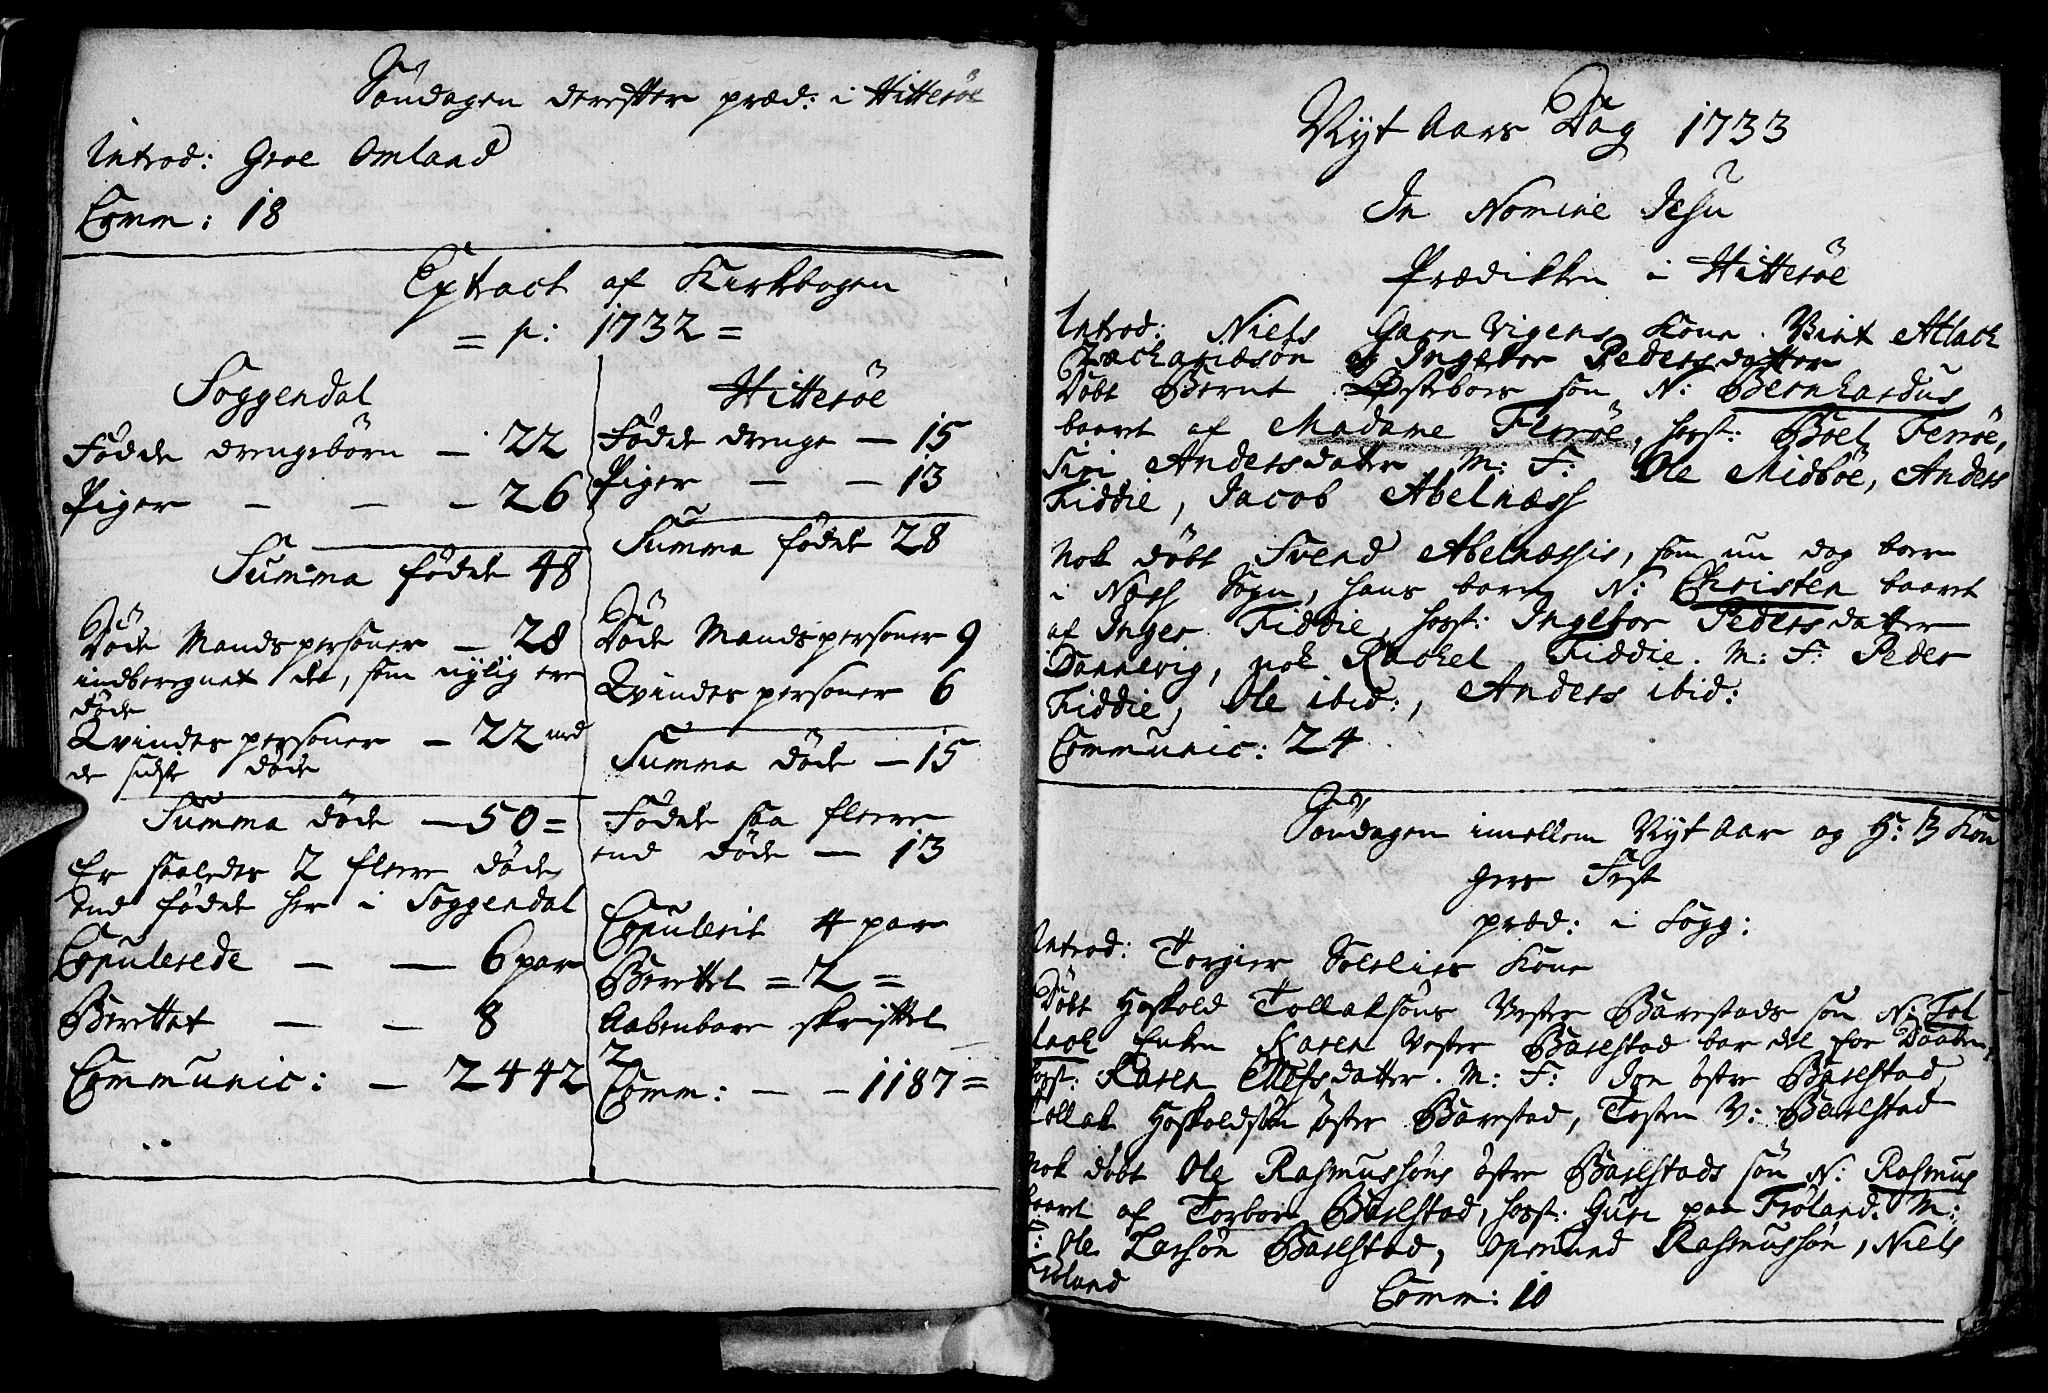 Søndagen derefter præd: i Hitterøe
Introd: Groe Omland
Comm: 18
Extract af Kirkebogen
= p: 1732 =
Soggendal
Fødde drengebörn — 22
Piger — — — 26
Summa fødde 48
Døde Mandspersoner — 28
indberegnet de, som nylig ere
døde
Qvindes personer — 22 med
de sidste døde
Summa døde — 50 =
Er saaledes 2 fleere døde
End fødde her i Soggendal
Copulerede — — 6 par
Berettet — — 8
Communic: — 2442
Hitterøe
Fødde drenge — 15
Piger — — 13
Summa fødde 28
Døde Mandspersoner 9
Qvindes personer 6
Summa døde — 15
Fødde saa fleere
end døde — 13
Copulerit 4 par
Berettet = 2 =
Aabenbare skriftet
2
Comm: — — 1187 =
Nyt Aars Dag 1733
In Nomine Jesu
Prædikken i Hitterøe
Introd: Niels Garn Vigens Kone. Viet Atlach
Zachariæsøn og Ingebor Pedersdatter
Døbt Bernt Østebøes søn N: Bernhardus
baaret af Madame Ferrøe, host: Boel Ferrøe,
Siri Andersdatter M: F: Ole Midbøe, Anders
Fiddie, Jacob Abelnæss
Nok døbt Svend Abelnæssis, som nu dag boer
i Næss Sogn, hans barn N: Christen baaret
af Inger Fiddie, host: Ingebor Pedersdatter
Dannevig, nok Rachel Fiddie. M: F: Peder
Fiddie, Ole ibid:, Anders ibid:
Communic: 24
Søndagen imellem Nyt Aar og H: 3 Kon
gers Fest
præd: i Sogg:
Introd: Torgier Solelies Kone
Døbt Hoskold Tollaksøns Vester Barestads søn N: Tol
lach Enken Karen Vester Barstad bar det for Daaben
host: Karen Ellefsdatter. M: F: Jon østre Barstad,
Tollak Hoskoldsøn øster Barestad, Tosten V: Barstad
Nok døbt Ole Rasmussøns østre Barstads søn N: Rasmus
baaret af Torbor Barstad, host: Guri paa Frøland. M:
F: Ole Larsøn Barstad, Omund Rasmussøn, Niels
Frøland
Comm: 10